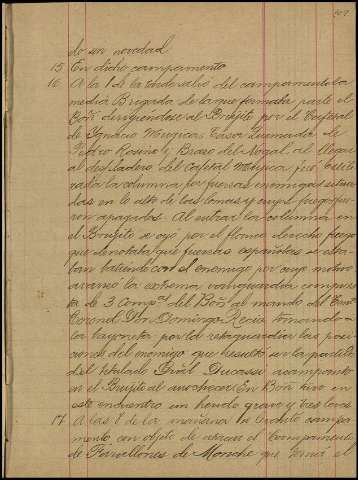 do sin novedad
15 En dicho campamento
16 A la 1 de la tarde salió del campamento la
media Brigada de la que formaba parte el
Bón dirigiendose al Brujito por el Cafetal
de Ignacio Mugica, Casa Quemada de
Pedro Rosine y Brazo del Nogal al llegar
al desfiladero del Cafetal Mugica fué hosti
zada la columna por fuerzas enemigas situa
das en lo alto de las lomas y cuyos fuegos fue
ron apagados Al entrar la columna en
el Brujito se oyó por el flanco derecho fuego
que denotaba que fuerzas españolas se esta
ban batiendo con el enemigo por cuyo motivo
avanzó la extrema vanguardia compues
ta de 3 Compas del Bón al mando del Tente
Coronel Don Domingo Recio tomando a
la bayoneta por la retaguardia las posi
ciones del enemigo que resultó ser la partida
del titulado Gral Ducassi acampando
en el Brujito al anochecer. El Bón tuvo en
este encuentro un herido grave y tres leves.
17 A las 8 de la mañana levantó campa
mento con objeto de atacar el Campamento
de Pavellones de Monche que tenia el